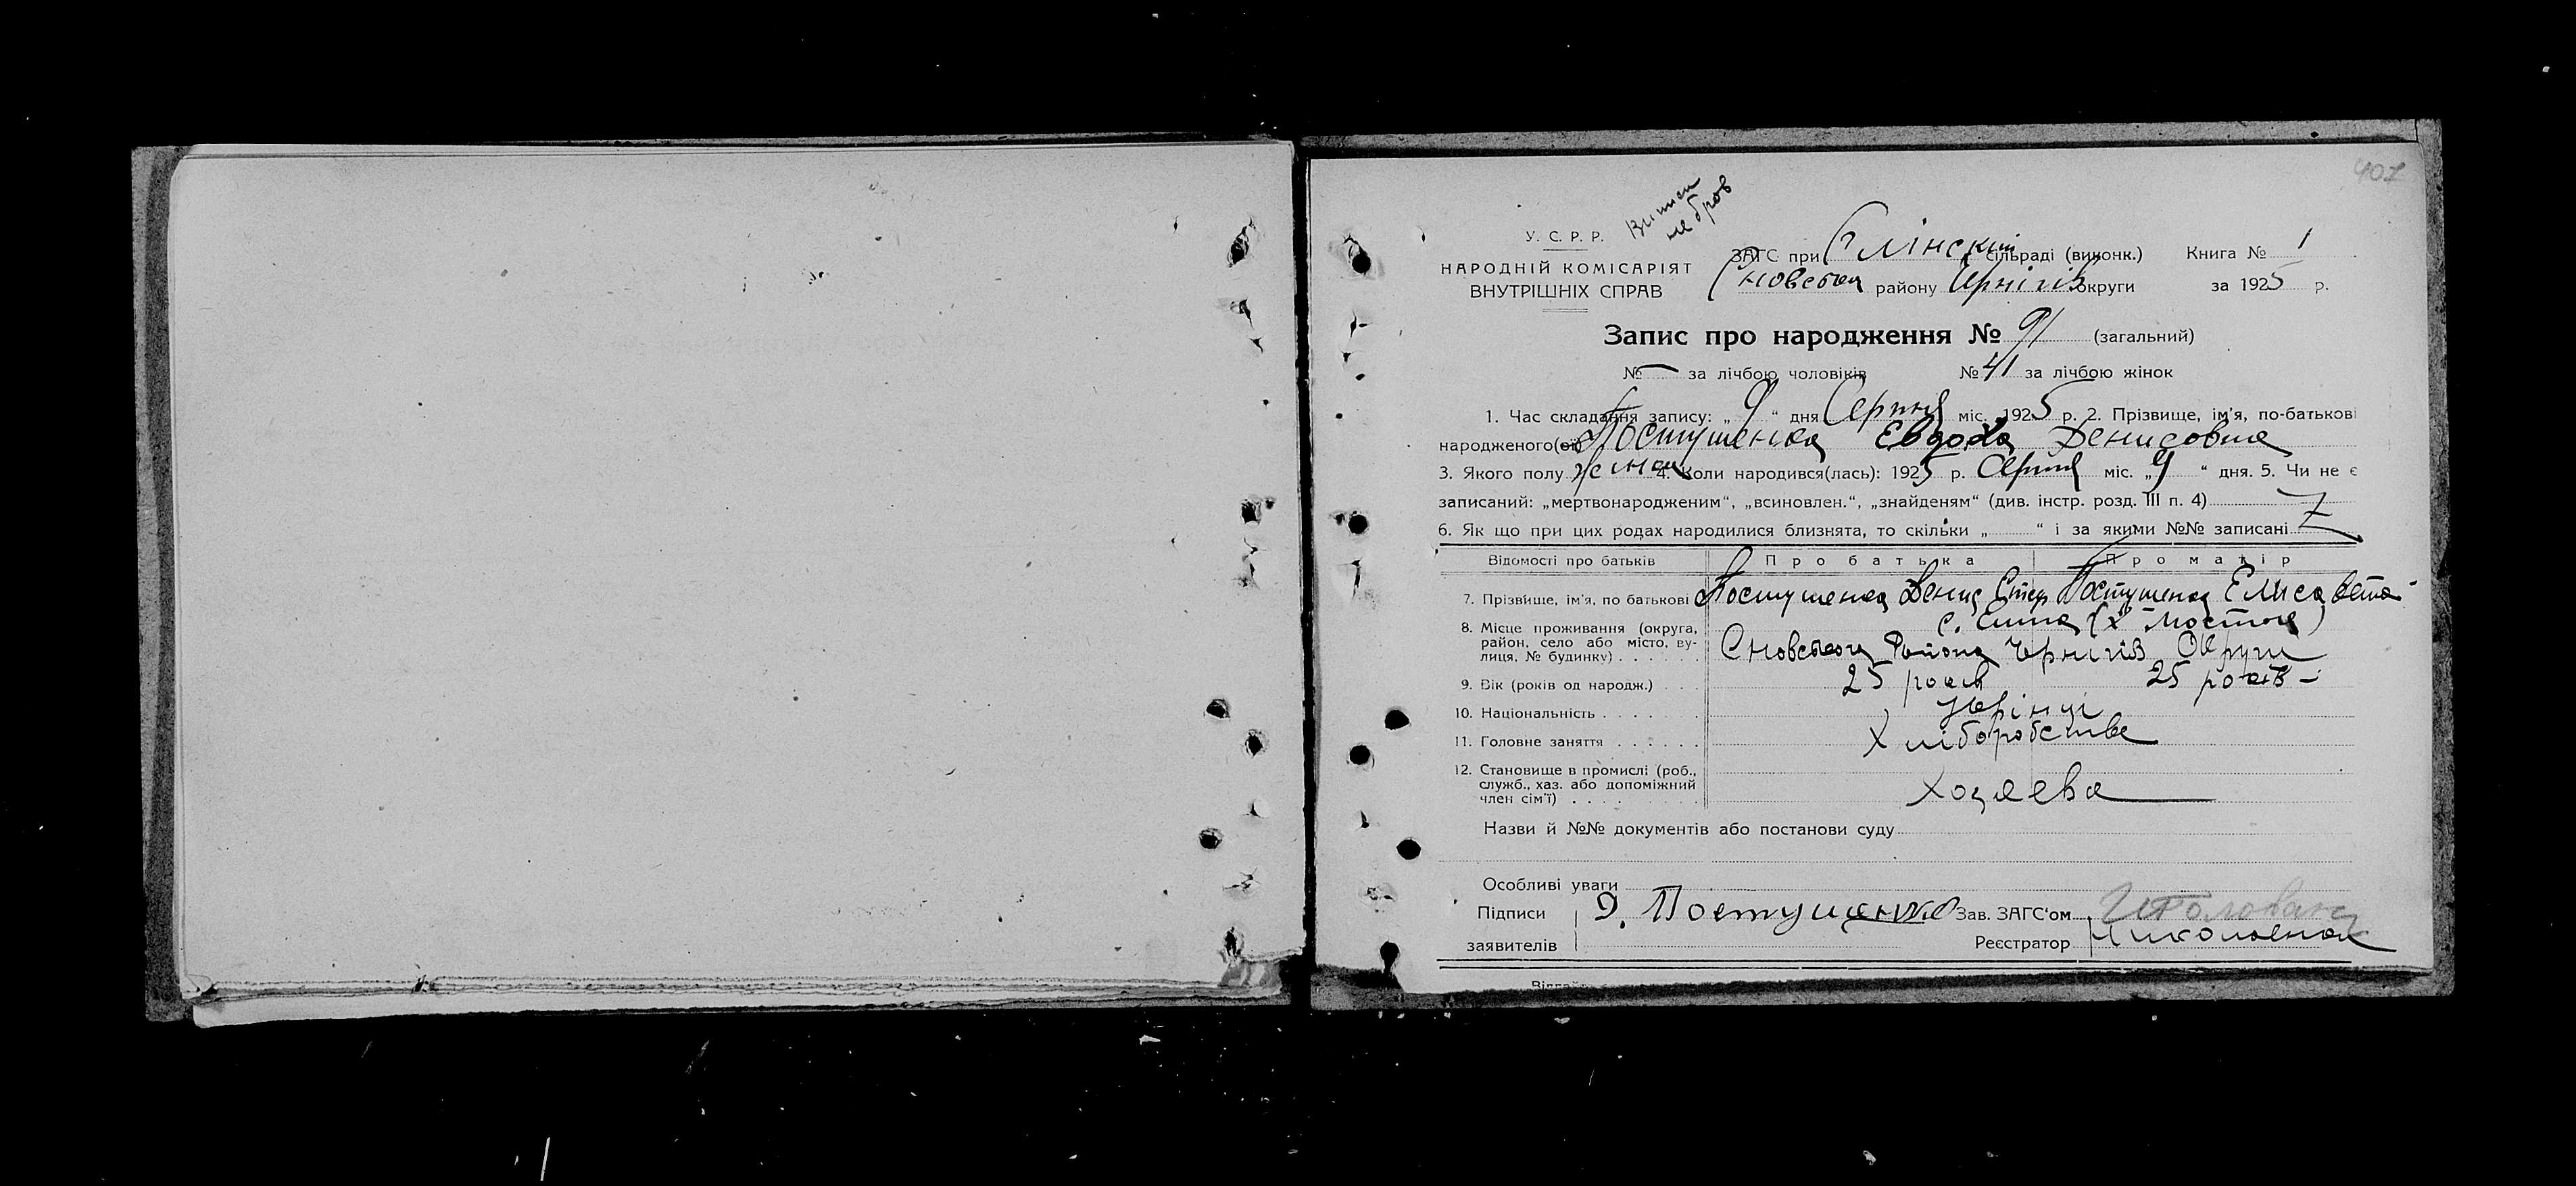 407
Витяг
не брав
У. С. Р. Р.
НАРОДНІЙ КОМІСАРІЯТ
ВНУТРІШНІХ СПРАВ
ЗАГС при Єлінскій сільраді (виконк.) Книга № 1
Сновского району Чернігів округи за 1925 р.
Запис про народження № 91 (загальний)
№ — за лічбою чоловіків № 41 за лічбою жінок
1. Час складання запису: „ 9 “ дня Серпня міс. 1925 р. 2. Прізвище, ім'я, по-батькові
народженого(ої) Постушенко Евдоха Денисовна
3. Якого полу жіноч 4. Коли народився(лась): 1925 р. Серпня міс. „ 9 “ дня. 5. Чи не є
записаний: „мертвонародженим“, „всиновлен.“, „знайденям“ (див. інстр. розд. III п. 4)
6. Як що при цих родах народилися близнята, то скільки „ “ і за якими №№ записані
Відомості про батьків Про батька Про матір
7. Прізвище, ім'я, по батькові Постушенко Денис Постушенко Елисавета
8. Місце проживання (округа,
район, село або місто, вулиця, № будинку) с. Єліно
Сновского Района Чернігів Округи
9. Вік (років од народж.) 25 років 25 років
10. Національність Українці
11. Головне заняття Хліборобство
12. Становище в промислі (роб.,
служб., хаз. або допоміжний
член сім'ї) Хозяева
Назви й №№ документів або постанови суду
Особливі уваги
Підписи Д. Постушенко Зав. ЗАГС'ом
заявителів Реєстратор